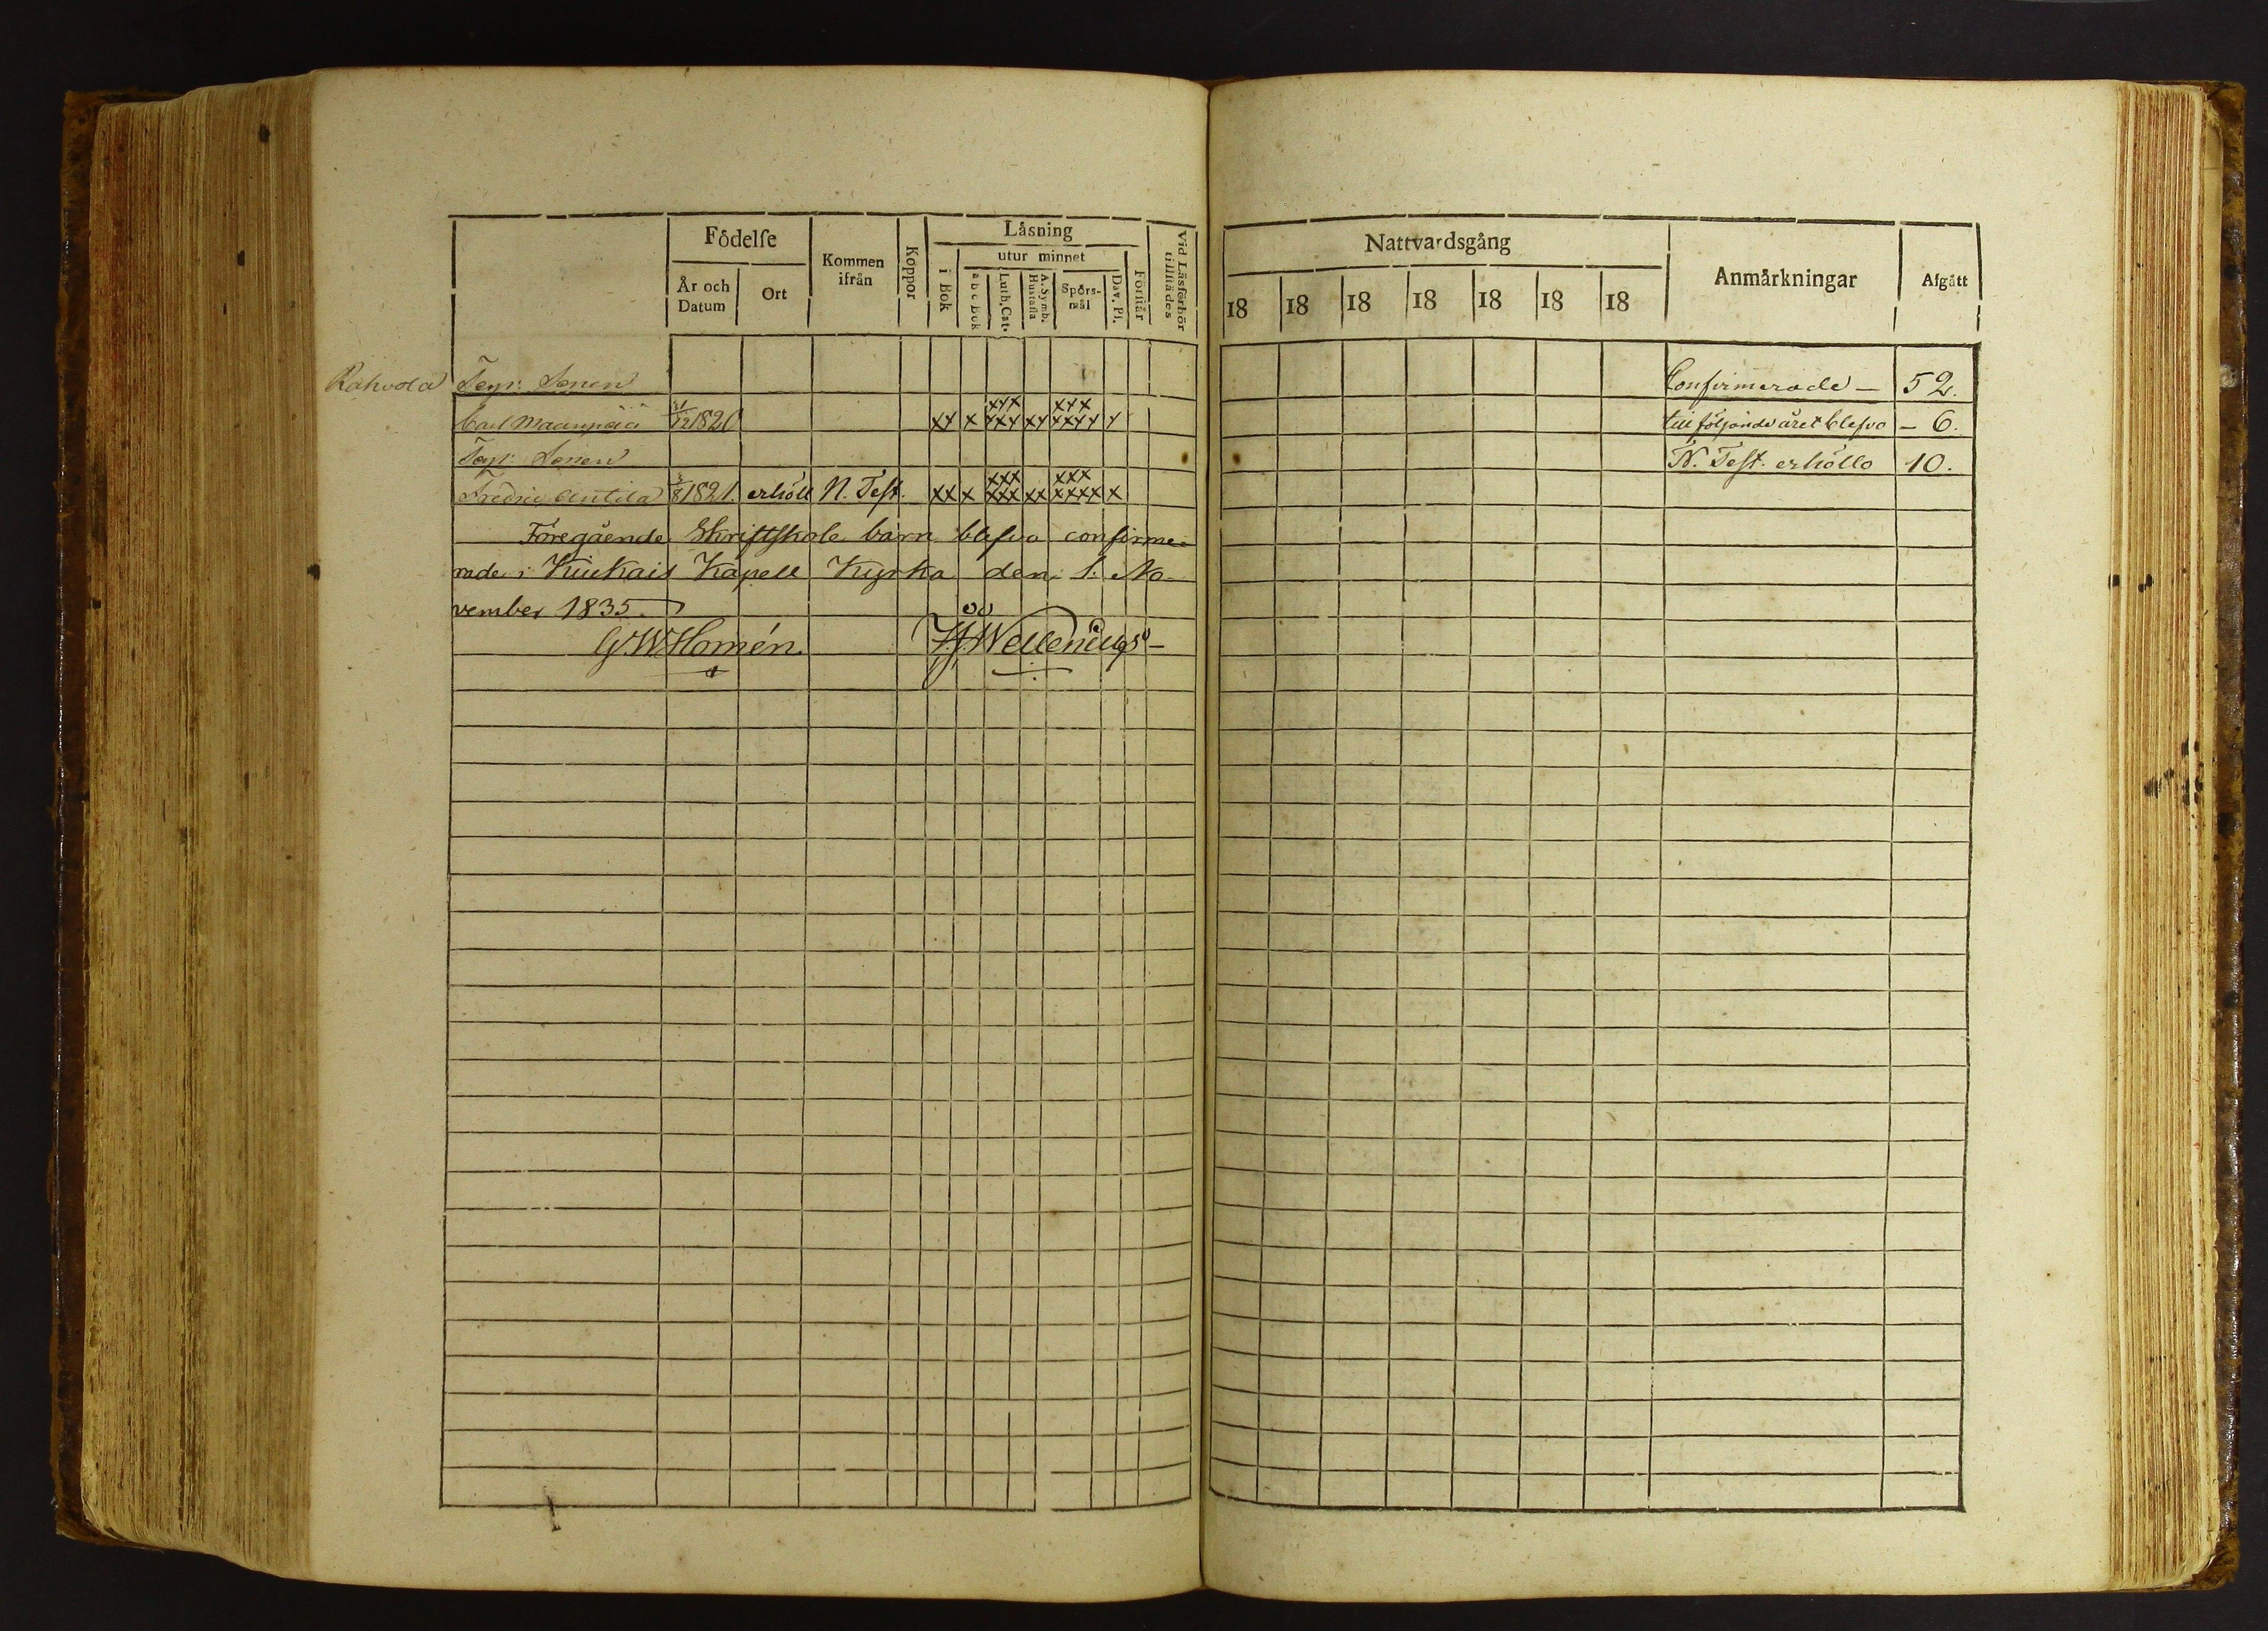 Födelse
Låsning
Kommen ifrån
Koppor
utur minnet
År och Datum
Ort
i Bok
a b c Bok
Luth. Cat.
A. Symb. Hustafla
Spörs-mål
Dav. Ps.
Förstår
Vid Läsförhör tillstädes
Rahvola Torp: Sonen
Carl Maanpää 21/12 1820 xx x xxx xxx xx xxx xxxx x
Torp: Sonen
Fredric Antila 3/8 1821. erhöll N. Test. xx x xxx xxx xx xxx xxxx x
Föregående Skriftskole barn blefvo confirme-
rade i Kiukais Kapell Kyrka den 1. No-
vember 1835.
G. W. Homén J. J. Wellenius
Nattvardsgång
Anmårkningar
Afgått
18 18 18 18 18 18 18
Confirmerade — 52.
till följande året blefvo — 6.
N. Test. erhöllo 10.